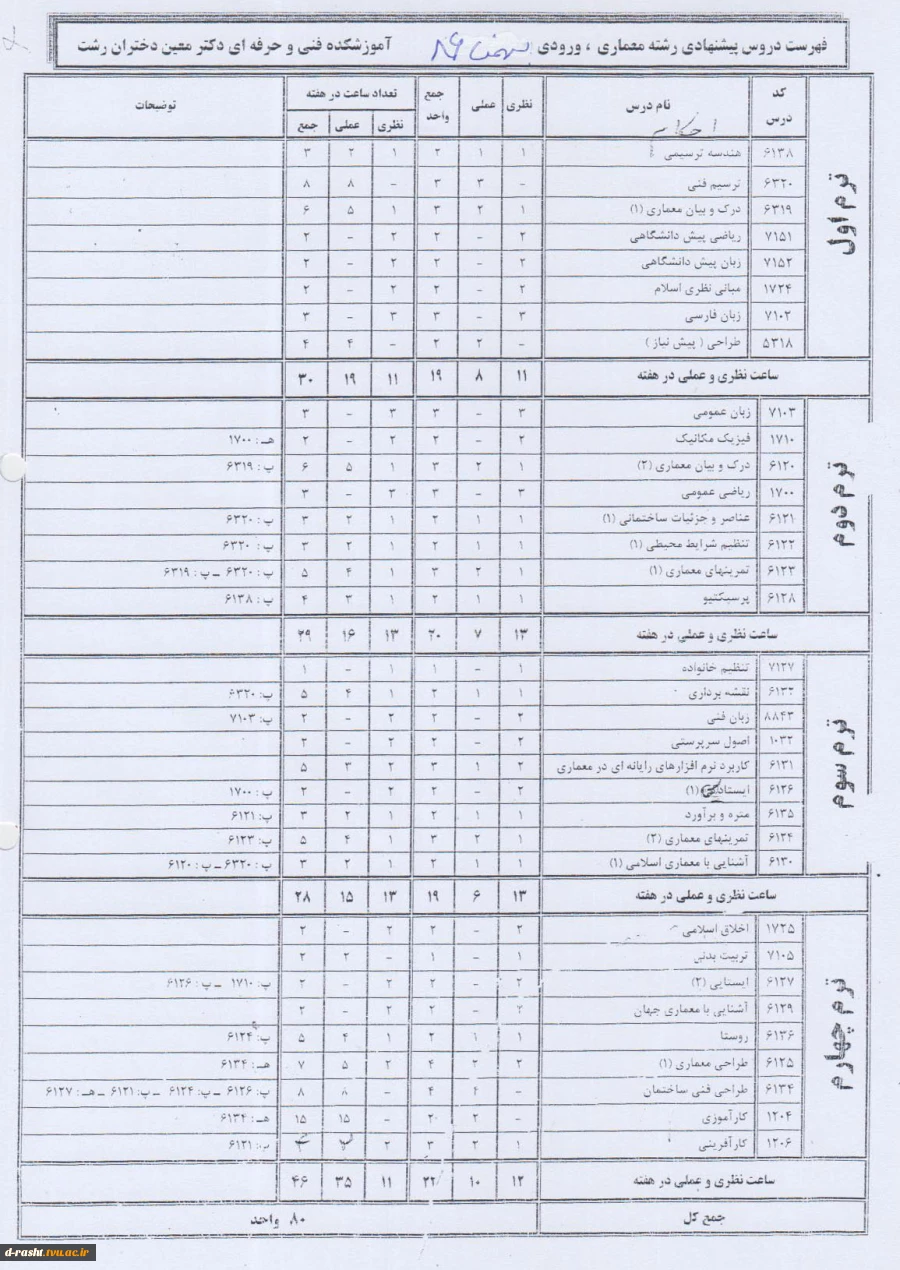 فهرست دروس پیشنهادی رشته معماری ، ورودی بهمن ۸۶ آموزشکده فنی و حرفه ای دکتر معین دختران رشت
کد درس | نام درس | نظری | عملی | جمع واحد | تعداد ساعت در هفته | توضیحات
نظری | عملی | جمع
ترم اول
۶۱۳۸ | هندسه ترسیمی | ۱ | ۱ | ۲ | ۱ | ۲ | ۳
۶۳۲۰ | ترسیم فنی | - | ۳ | ۳ | - | ۸ | ۸
۶۳۱۹ | درک و بیان معماری (۱) | ۱ | ۲ | ۳ | ۱ | ۵ | ۶
۷۱۵۱ | ریاضی پیش دانشگاهی | ۲ | - | ۲ | ۲ | - | ۲
۷۱۵۲ | زبان پیش دانشگاهی | ۲ | - | ۲ | ۲ | - | ۲
۱۷۲۴ | مبانی نظری اسلام | ۲ | - | ۲ | ۲ | - | ۲
۷۱۰۲ | زبان فارسی | ۳ | - | ۳ | ۳ | - | ۳
۵۳۱۸ | طراحی ( پیش نیاز ) | - | ۲ | ۲ | - | ۴ | ۴
ساعت نظری و عملی در هفته | ۱۱ | ۸ | ۱۹ | ۱۱ | ۱۹ | ۳۰
ترم دوم
۷۱۰۳ | زبان عمومی | ۳ | - | ۳ | ۳ | - | ۳
۱۷۱۰ | فیزیک مکانیک | ۲ | - | ۲ | ۲ | - | ۲ | هـ : ۱۷۰۰
۶۱۲۰ | درک و بیان معماری (۲) | ۱ | ۲ | ۳ | ۱ | ۵ | ۶ | پ : ۶۳۱۹
۱۷۰۰ | ریاضی عمومی | ۳ | - | ۳ | ۳ | - | ۳
۶۱۲۱ | عناصر و جزئیات ساختمانی (۱) | ۱ | ۱ | ۲ | ۱ | ۲ | ۳ | پ : ۶۳۲۰
۶۱۲۲ | تنظیم شرایط محیطی (۱) | ۱ | ۱ | ۲ | ۱ | ۲ | ۳ | پ : ۶۳۲۰
۶۱۲۳ | تمرینهای معماری (۱) | ۱ | ۲ | ۳ | ۱ | ۴ | ۵ | پ : ۶۳۲۰ ــ پ : ۶۳۱۹
۶۱۲۸ | پرسپکتیو | ۱ | ۱ | ۲ | ۱ | ۳ | ۴ | پ : ۶۱۳۸
ساعت نظری و عملی در هفته | ۱۳ | ۷ | ۲۰ | ۱۳ | ۱۶ | ۲۹
ترم سوم
۷۱۲۷ | تنظیم خانواده | ۱ | - | ۱ | ۱ | - | ۱
۶۱۳۲ | نقشه برداری | ۱ | ۱ | ۲ | ۱ | ۴ | ۵ | پ: ۶۳۲۰
۸۸۴۳ | زبان فنی | ۲ | - | ۲ | ۲ | - | ۲ | پ: ۷۱۰۳
۱۰۳۲ | اصول سرپرستی | ۲ | - | ۲ | ۲ | - | ۲
۶۱۳۱ | کاربرد نرم افزارهای رایانه ای در معماری | ۲ | ۱ | ۳ | ۲ | ۳ | ۵
۶۱۲۶ | ایستادگی (۱) | ۲ | - | ۲ | ۲ | - | ۲ | پ : ۱۷۰۰
۶۱۳۵ | متره و برآورد | ۱ | ۱ | ۲ | ۱ | ۲ | ۳ | پ: ۶۱۲۱
۶۱۲۴ | تمرینهای معماری (۲) | ۱ | ۲ | ۳ | ۱ | ۴ | ۵ | پ: ۶۱۲۳
۶۱۳۰ | آشنایی با معماری اسلامی (۱) | ۱ | ۱ | ۲ | ۱ | ۲ | ۳ | پ : ۶۳۲۰ــ پ: ۶۱۲۰
ساعت نظری و عملی در هفته | ۱۳ | ۶ | ۱۹ | ۱۳ | ۱۵ | ۲۸
ترم چهارم
۱۷۲۵ | اخلاق اسلامی | ۲ | - | ۲ | ۲ | - | ۲
۷۱۰۵ | تربیت بدنی | ۱ | - | ۱ | - | ۲ | ۲
۶۱۲۷ | ایستایی (۲) | ۲ | - | ۲ | ۲ | - | ۲ | پ: ۱۷۱۰ ــ پ : ۶۱۲۶
۶۱۲۹ | آشنایی با معماری جهان | ۲ | - | ۲ | ۲ | - | ۲
۶۱۳۶ | روستا | ۱ | ۱ | ۲ | ۱ | ۴ | ۵ | پ: ۶۱۲۴
۶۱۲۵ | طراحی معماری (۱) | ۲ | ۲ | ۴ | ۲ | ۵ | ۷ | هـ: ۶۱۳۴
۶۱۳۴ | طراحی فنی ساختمان | - | ۴ | ۴ | - | ۸ | ۸ | پ: ۶۱۲۶ ــ پ: ۶۱۲۴ ــ پ: ۶۱۲۱ ــ هـ: ۶۱۲۷
۱۲۰۴ | کارآموزی | - | ۲ | ۲ | - | ۱۵ | ۱۵ | هـ: ۶۱۳۴
۱۲۰۶ | کارآفرینی | ۱ | ۲ | ۳ | ۲ | پ: ۶۱۲۱
ساعت نظری و عملی در هفته | ۱۲ | ۱۰ | ۲۲ | ۱۱ | ۳۵ | ۴۶
جمع کل | ۸۰ واحد
d-rasht.tvu.ac.ir